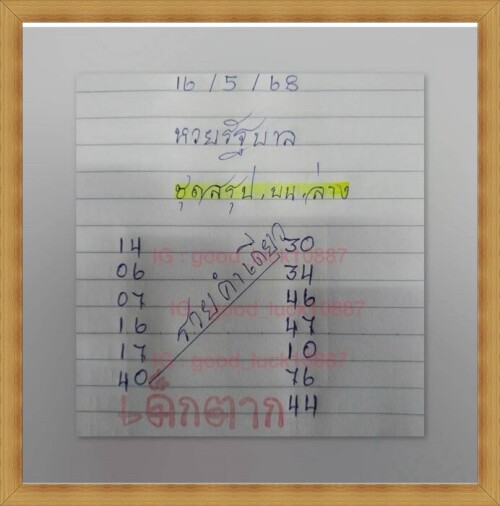 16/5/68
หวยรัฐบาล
ชุดสรุป.บน.ล่าง
14 30
06 34
07 46
16 47
17 10
40 76
44
รวยคำเดียว
IG : good_luck10887
IG : good_luck10887
IG : good_luck10887
เด็กตาก